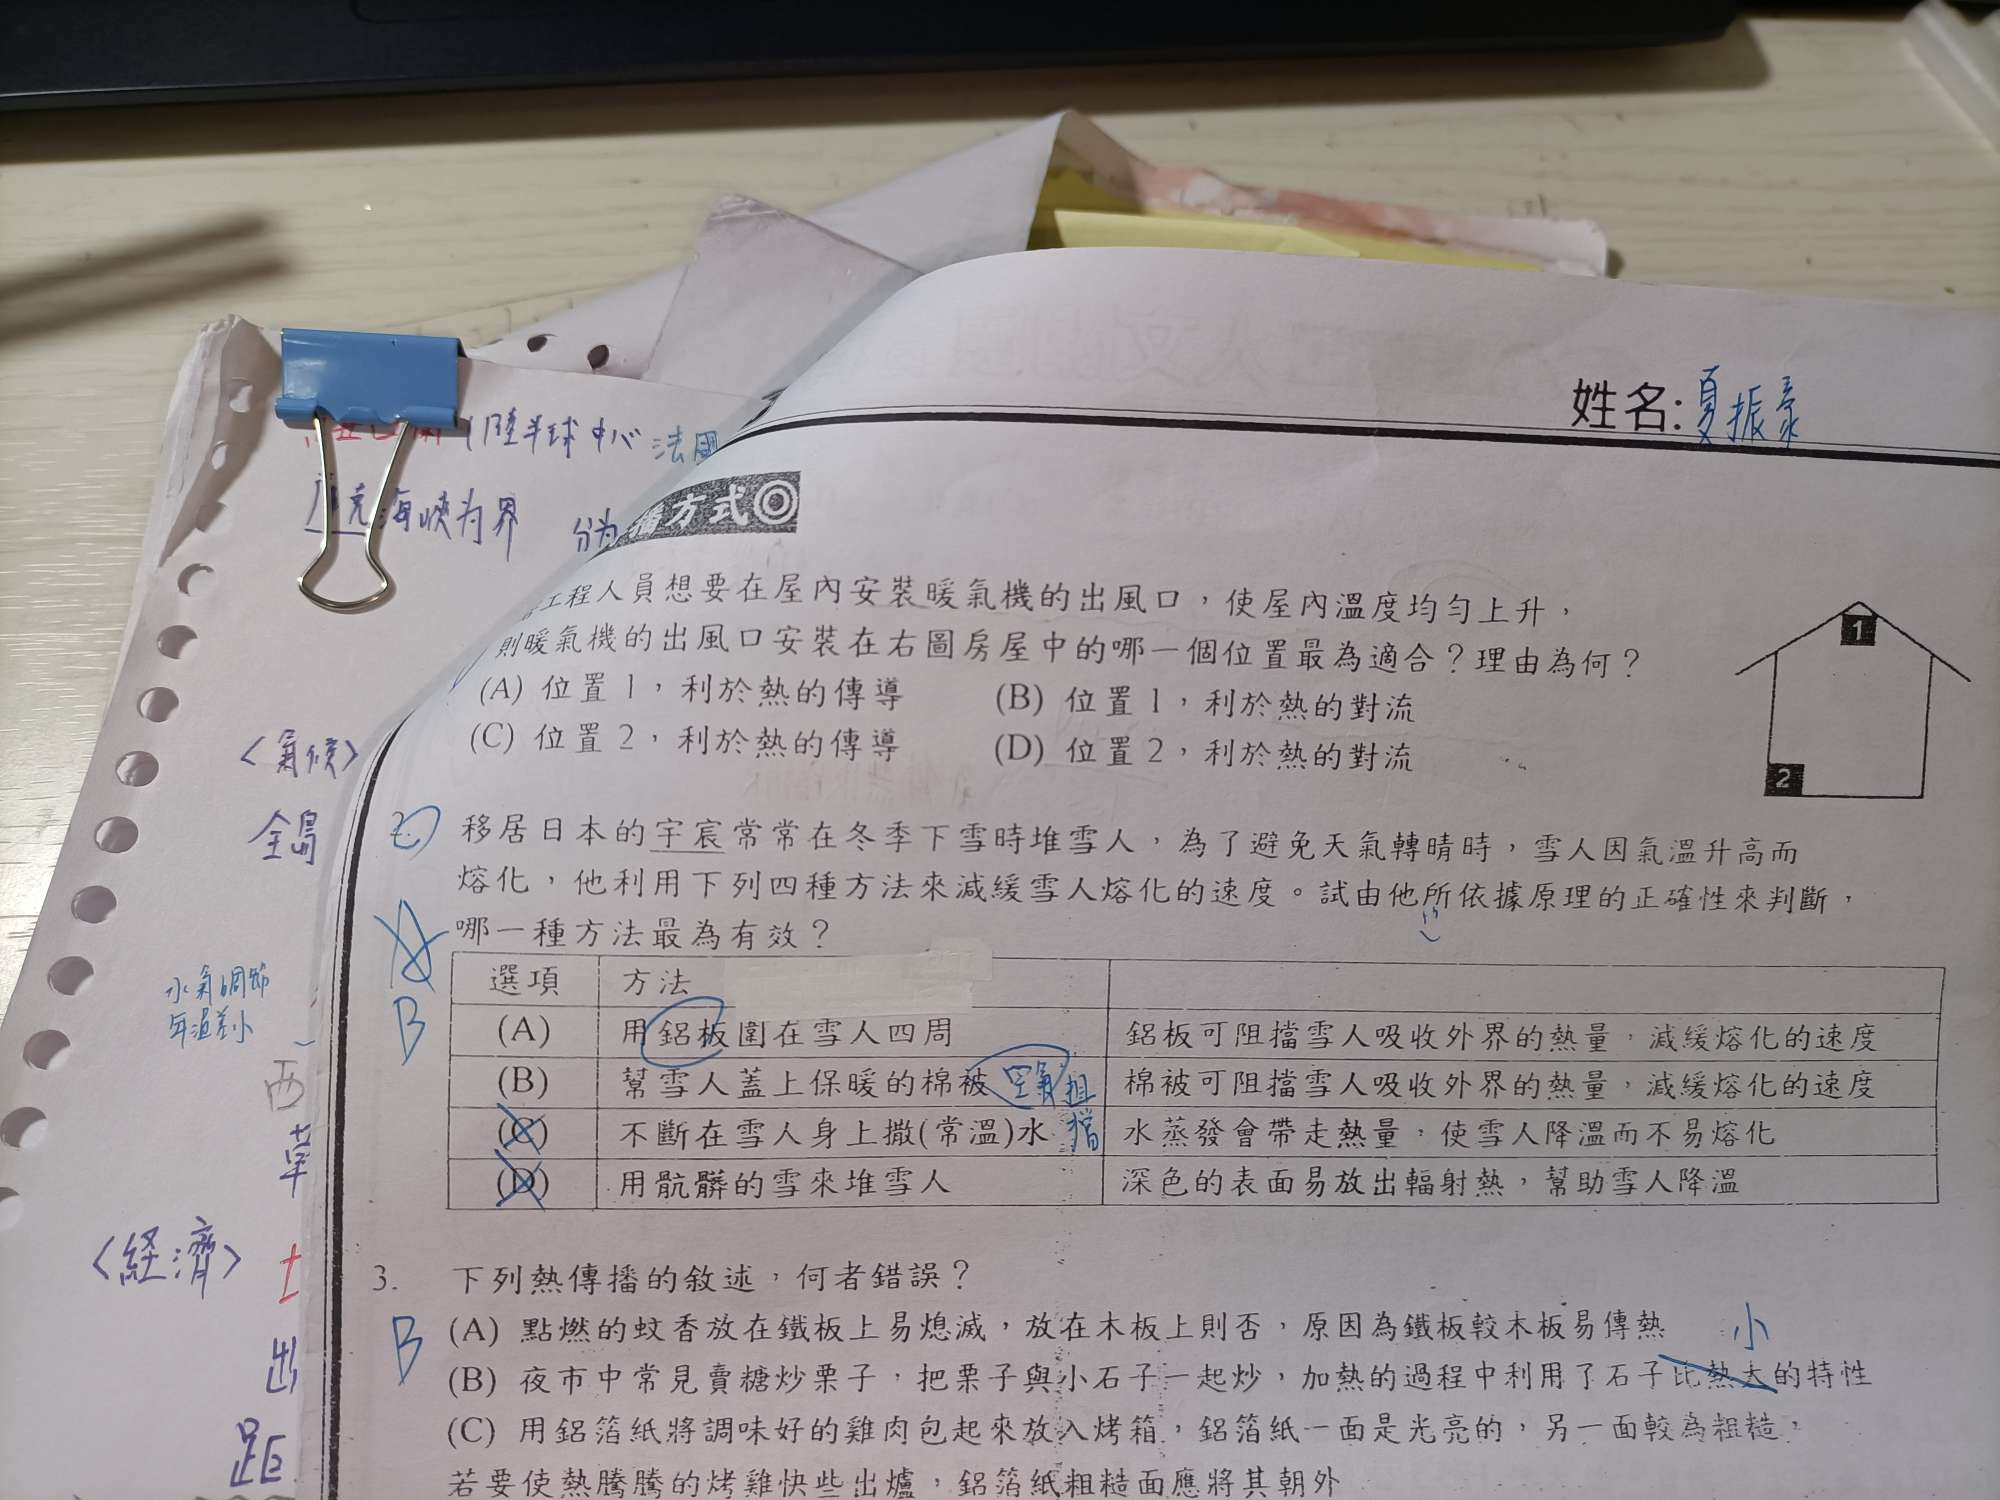 姓名:夏振豪
(陸半球中心 法國
克海峽为界 分为
播方式◎
工程人員想要在屋內安裝暖氣機的出風口,使屋內溫度均勻上升,
則暖氣機的出風口安裝在右圖房屋中的哪一個位置最為適合?理由為何?
(A) 位置1,利於熱的傳導
(B) 位置1,利於熱的對流
(C) 位置2,利於熱的傳導
(D) 位置2,利於熱的對流
1
2
〈氣候〉
全島
水氣調節
年溫差小
西
草
〈経濟〉
土
出
距
2. 移居日本的宇宸常常在冬季下雪時堆雪人,為了避免天氣轉晴時,雪人因氣溫升高而
熔化,他利用下列四種方法來減緩雪人熔化的速度。試由他所依據原理的正確性來判斷,
哪一種方法最為有效?
B
選項 方法
(A) 用鋁板圍在雪人四周 鋁板可阻擋雪人吸收外界的熱量,減緩熔化的速度
(B) 幫雪人蓋上保暖的棉被 空氣阻擋 棉被可阻擋雪人吸收外界的熱量,減緩熔化的速度
(C) 不斷在雪人身上撒(常溫)水 水蒸發會帶走熱量,使雪人降溫而不易熔化
(D) 用骯髒的雪來堆雪人 深色的表面易放出輻射熱,幫助雪人降溫
3. 下列熱傳播的敘述,何者錯誤?
B
(A) 點燃的蚊香放在鐵板上易熄滅,放在木板上則否,原因為鐵板較木板易傳熱
小
(B) 夜市中常見賣糖炒栗子,把栗子與小石子一起炒,加熱的過程中利用了石子比熱大的特性
(C) 用鋁箔紙將調味好的雞肉包起來放入烤箱,鋁箔紙一面是光亮的,另一面較為粗糙,
若要使熱騰騰的烤雞快些出爐,鋁箔紙粗糙面應將其朝外